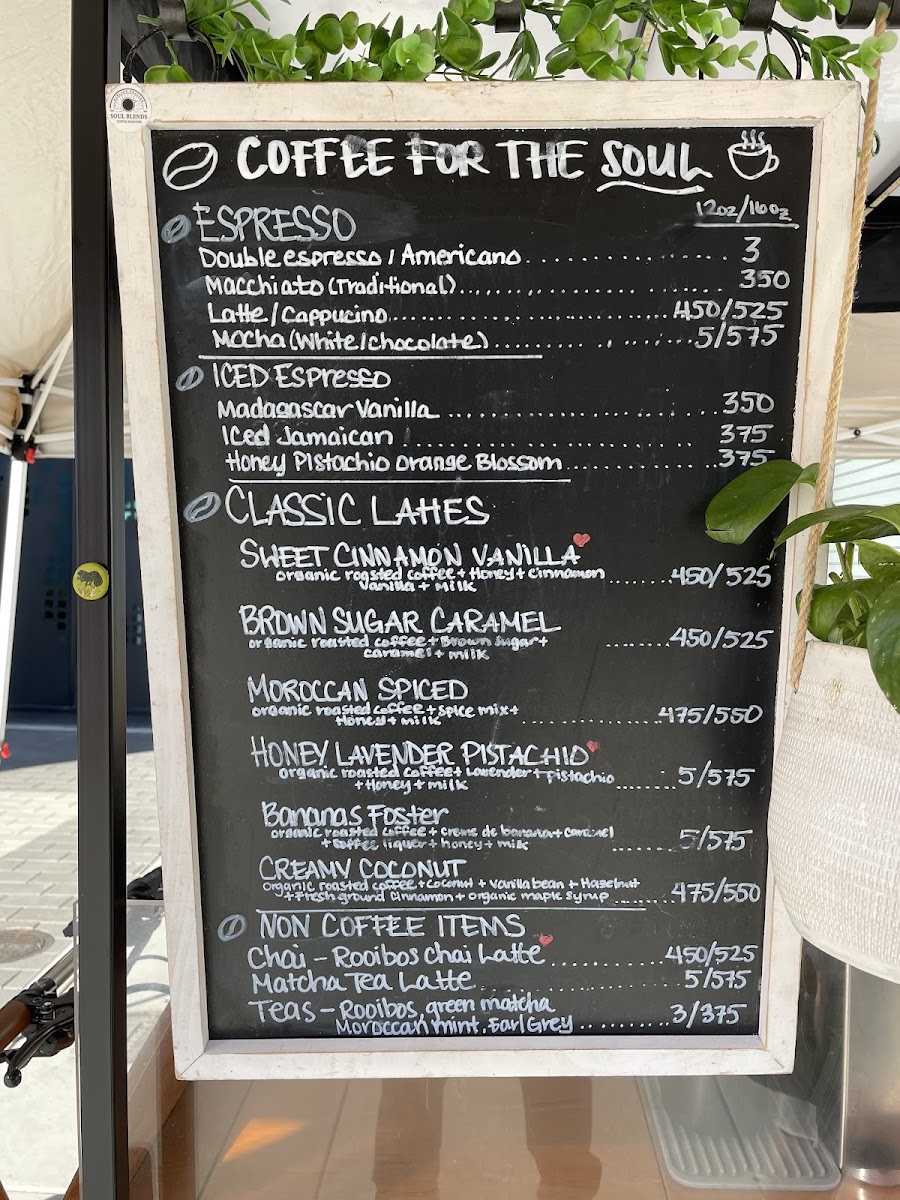 SOUL BLENDS
COFFEE FOR THE SOUL
12oz/16oz
ESPRESSO
Double espresso / Americano 3
Macchiato (Traditional) 350
Latte / Cappucino 450/525
Mocha (White/chocolate) 5/575
ICED ESPRESSO
Madagascar Vanilla 350
Iced Jamaican 375
Honey Pistachio Orange Blossom 375
CLASSIC LATTES
SWEET CINNAMON VANILLA
organic roasted coffee + Honey + cinnamon 450/525
Vanilla + Milk
BROWN SUGAR CARAMEL
organic roasted coffee + Brown sugar + 450/525
caramel + milk
MOROCCAN SPICED
organic roasted coffee + spice mix + 475/550
Honey + milk
HONEY LAVENDER PISTACHIO
organic roasted coffee + Lavender + Pistachio 5/575
+ Honey + milk
Bananas Foster
organic roasted coffee + creme de banana + caramel 5/575
+ coffee liquer + honey + milk
CREAMY COCONUT
organic roasted coffee + coconut + vanilla bean + Hazelnut
+ Fresh ground Cinnamon + organic maple syrup 475/550
NON COFFEE ITEMS
Chai - Rooibos Chai Latte 450/525
Matcha Tea Latte 5/575
Teas - Rooibos, green matcha
Moroccan mint, Earl Grey 3/375